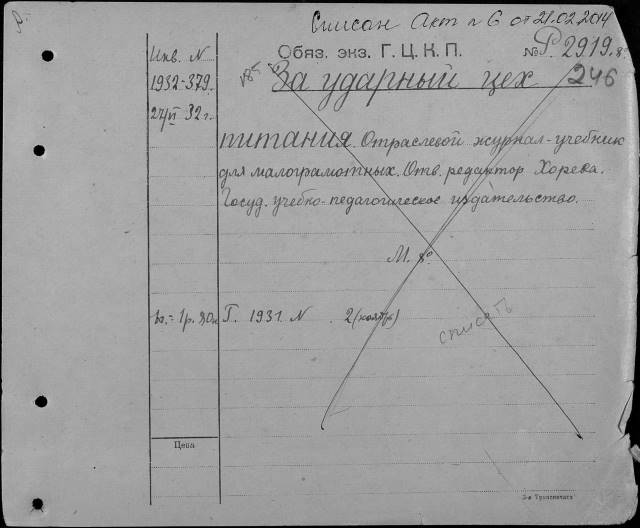 Списан Акт № 6 от 21.02.2014
Обяз. экз. Г. Ц. К. П.
№ Р 2919. 8°
Инв. N
1932-379.
24/VI 32 г.
185
За ударный цех
246
питания. Отраслевой журнал-учебник
для малограмотных. Отв. редактор Хорева.
Госуд. учебно-педагогическое издательство.
М. 8°
1р. 80к
Г. 1931. N 2 (ноябрь)
списать
Цена